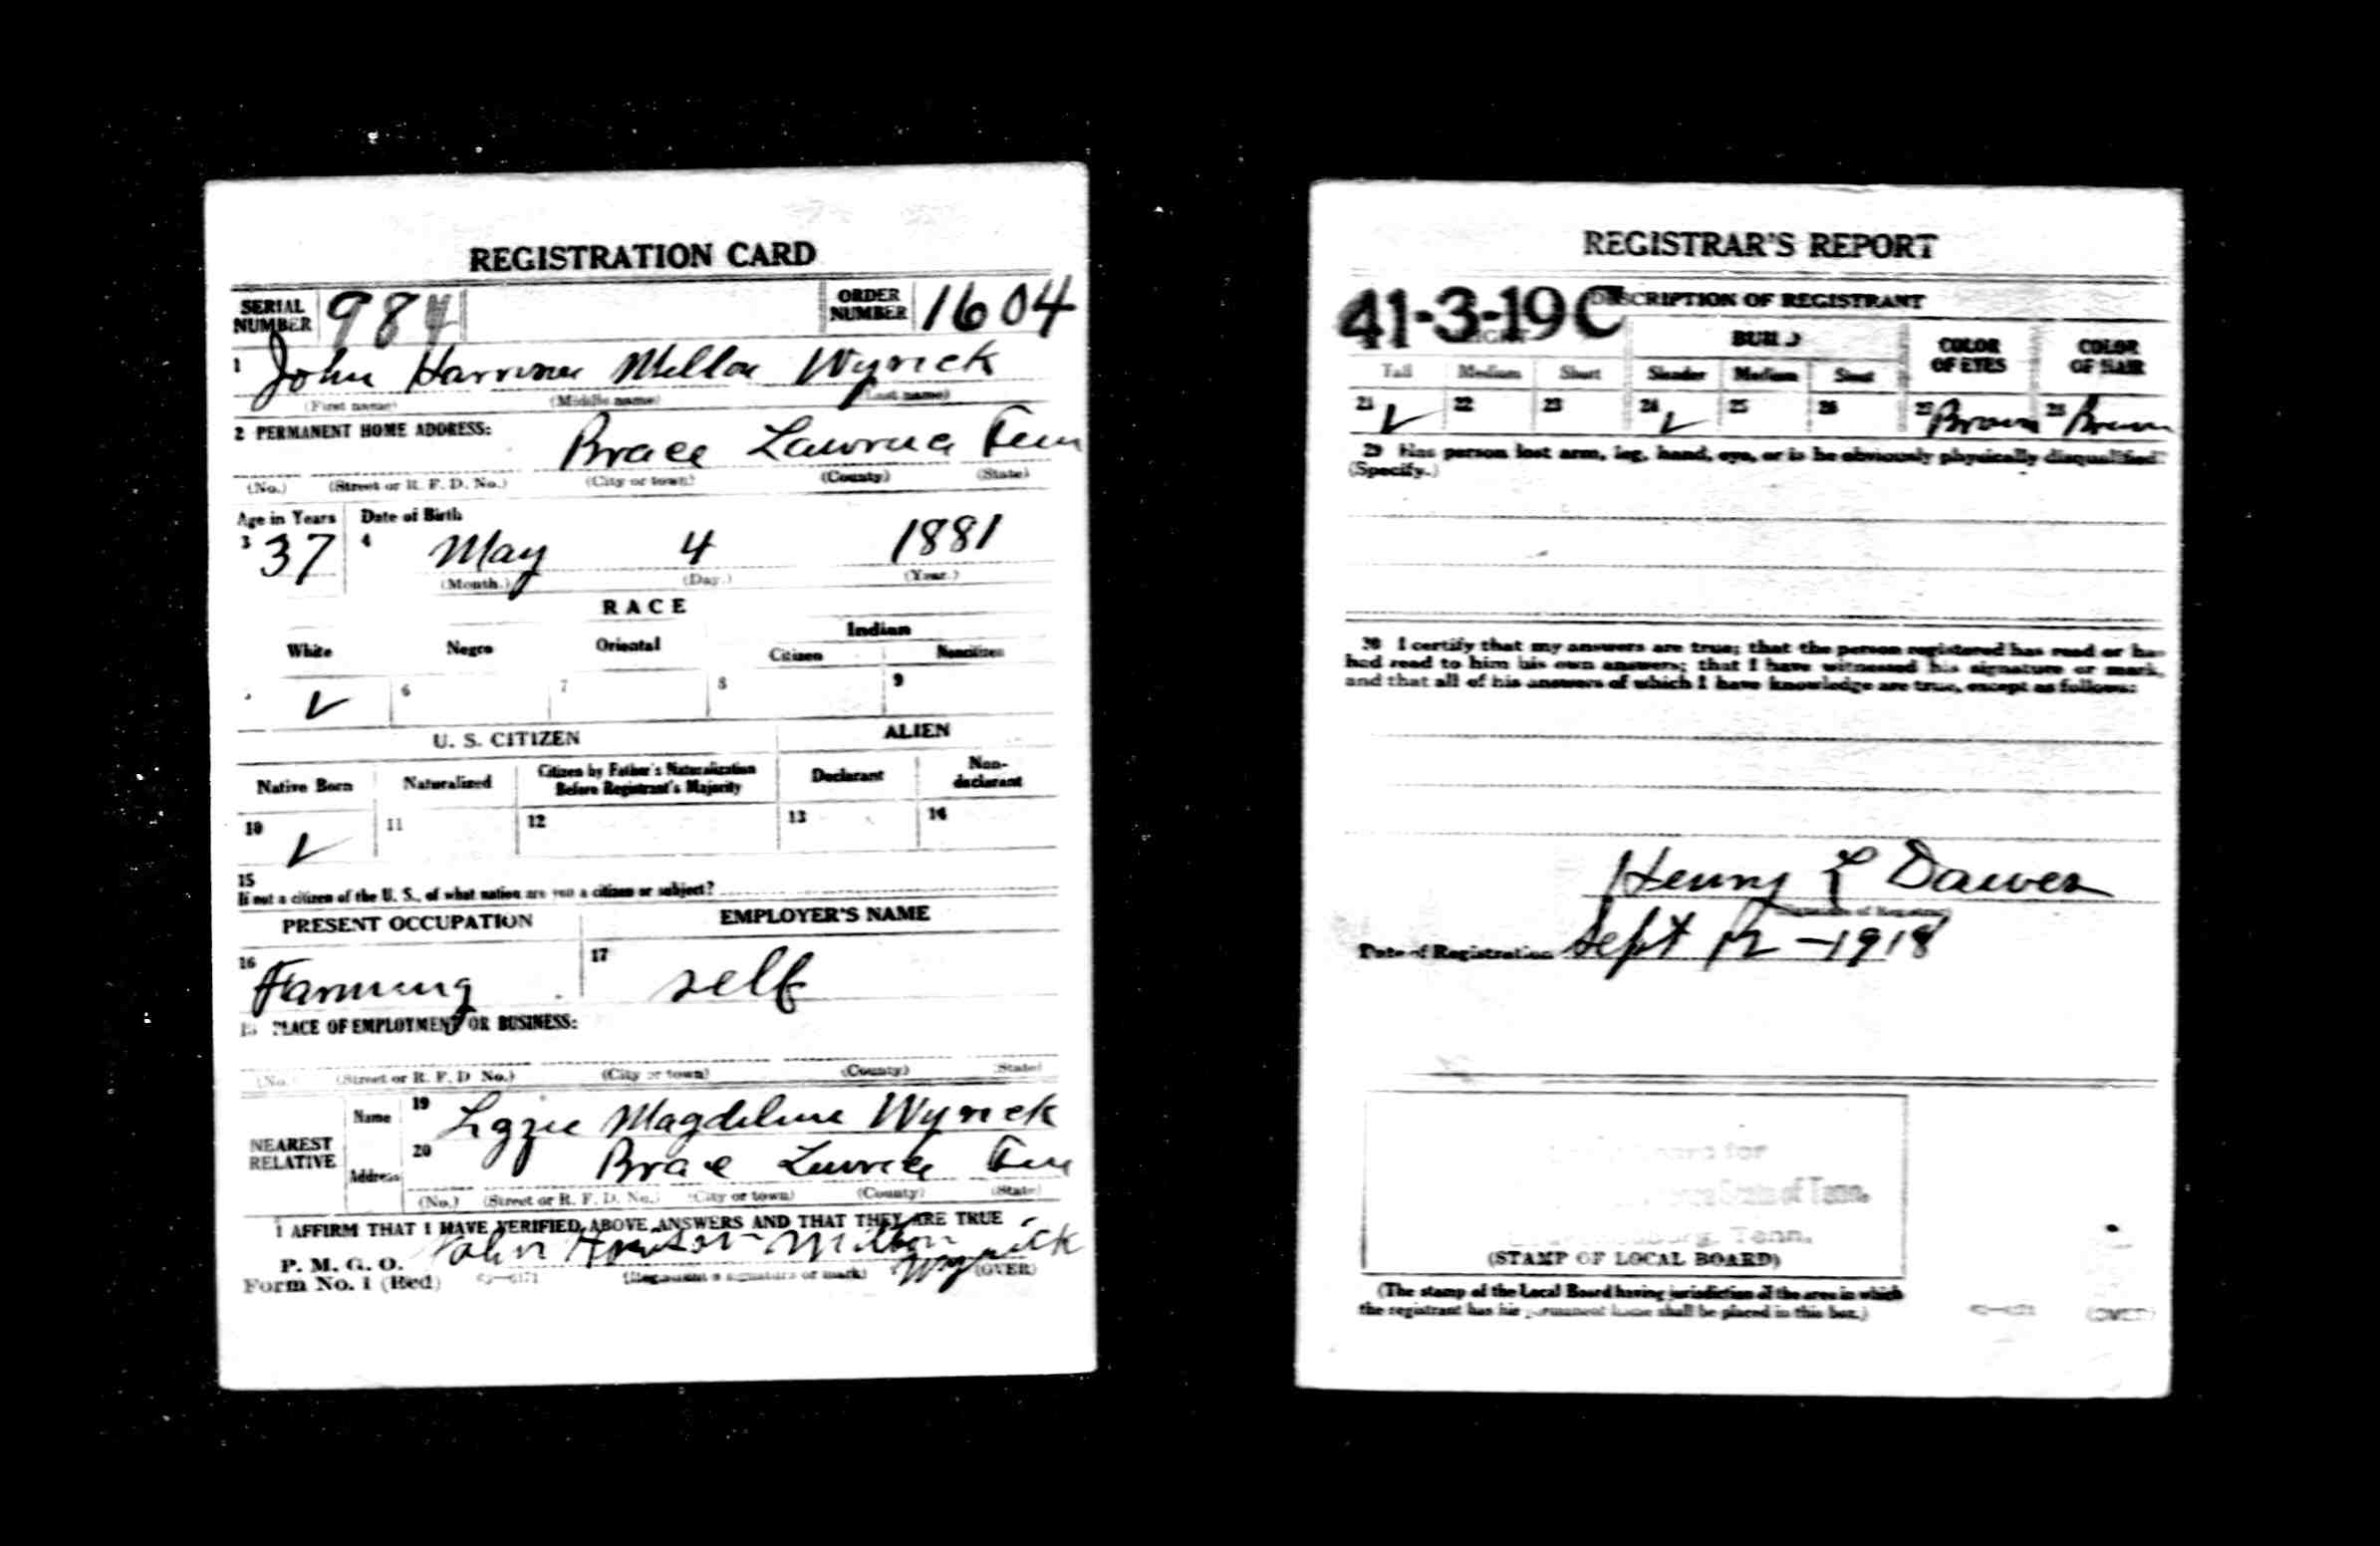 REGISTRATION CARD
SERIAL NUMBER 984 ORDER NUMBER 1604
1 John Harrison Milton Wyrick
(First name) (Middle name) (Last name)
2 PERMANENT HOME ADDRESS:
Brace Lawrence Tenn
(No.) (Street or R. F. D. No.) (City or town) (County) (State)
Age in Years Date of Birth
3 37 4 May 4 1881
(Month.) (Day.) (Year.)
RACE
White Negro Oriental Indian
Citizen Noncitizen
✓ 6 7 8 9
U. S. CITIZEN ALIEN
Native Born Naturalized Citizen by Father's Naturalization Before Registrant's Majority Declarant Non-declarant
10 ✓ 11 12 13 14
15
If not a citizen of the U. S., of what nation are you a citizen or subject?
PRESENT OCCUPATION EMPLOYER'S NAME
16 Farming 17 self
PLACE OF EMPLOYMENT OR BUSINESS:
(No.) (Street or R. F. D. No.) (City or town) (County) (State)
NEAREST RELATIVE
Name 19 Lizzie Magdeline Wyrick
Address 20 Brace Lawrence Tenn
(No.) (Street or R. F. D. No.) (City or town) (County) (State)
I AFFIRM THAT I HAVE VERIFIED ABOVE ANSWERS AND THAT THEY ARE TRUE
P. M. G. O.
Form No. 1 (Red) John Harrison Milton Wyrick
(Registrant's signature or mark) (OVER)
REGISTRAR'S REPORT
41-3-19 C
DESCRIPTION OF REGISTRANT
BUILD COLOR OF EYES COLOR OF HAIR
Tall Medium Short Slender Medium Stout
21 ✓ 22 23 24 ✓ 25 26 27 Brown 28 Brown
29 Has person lost arm, leg, hand, eye, or is he obviously physically disqualified?
(Specify.)
30 I certify that my answers are true; that the person registered has read or has
had read to him his own answers; that I have witnessed his signature or mark,
and that all of his answers of which I have knowledge are true, except as follows:
Henry L Dawes
(Signature of Registrar)
Date of Registration Sept 12-1918
for
State of Tenn.
Tenn.
(STAMP OF LOCAL BOARD)
(The stamp of the Local Board having jurisdiction of the area in which
the registrant has his permanent home shall be placed in this box.)
(OVER)